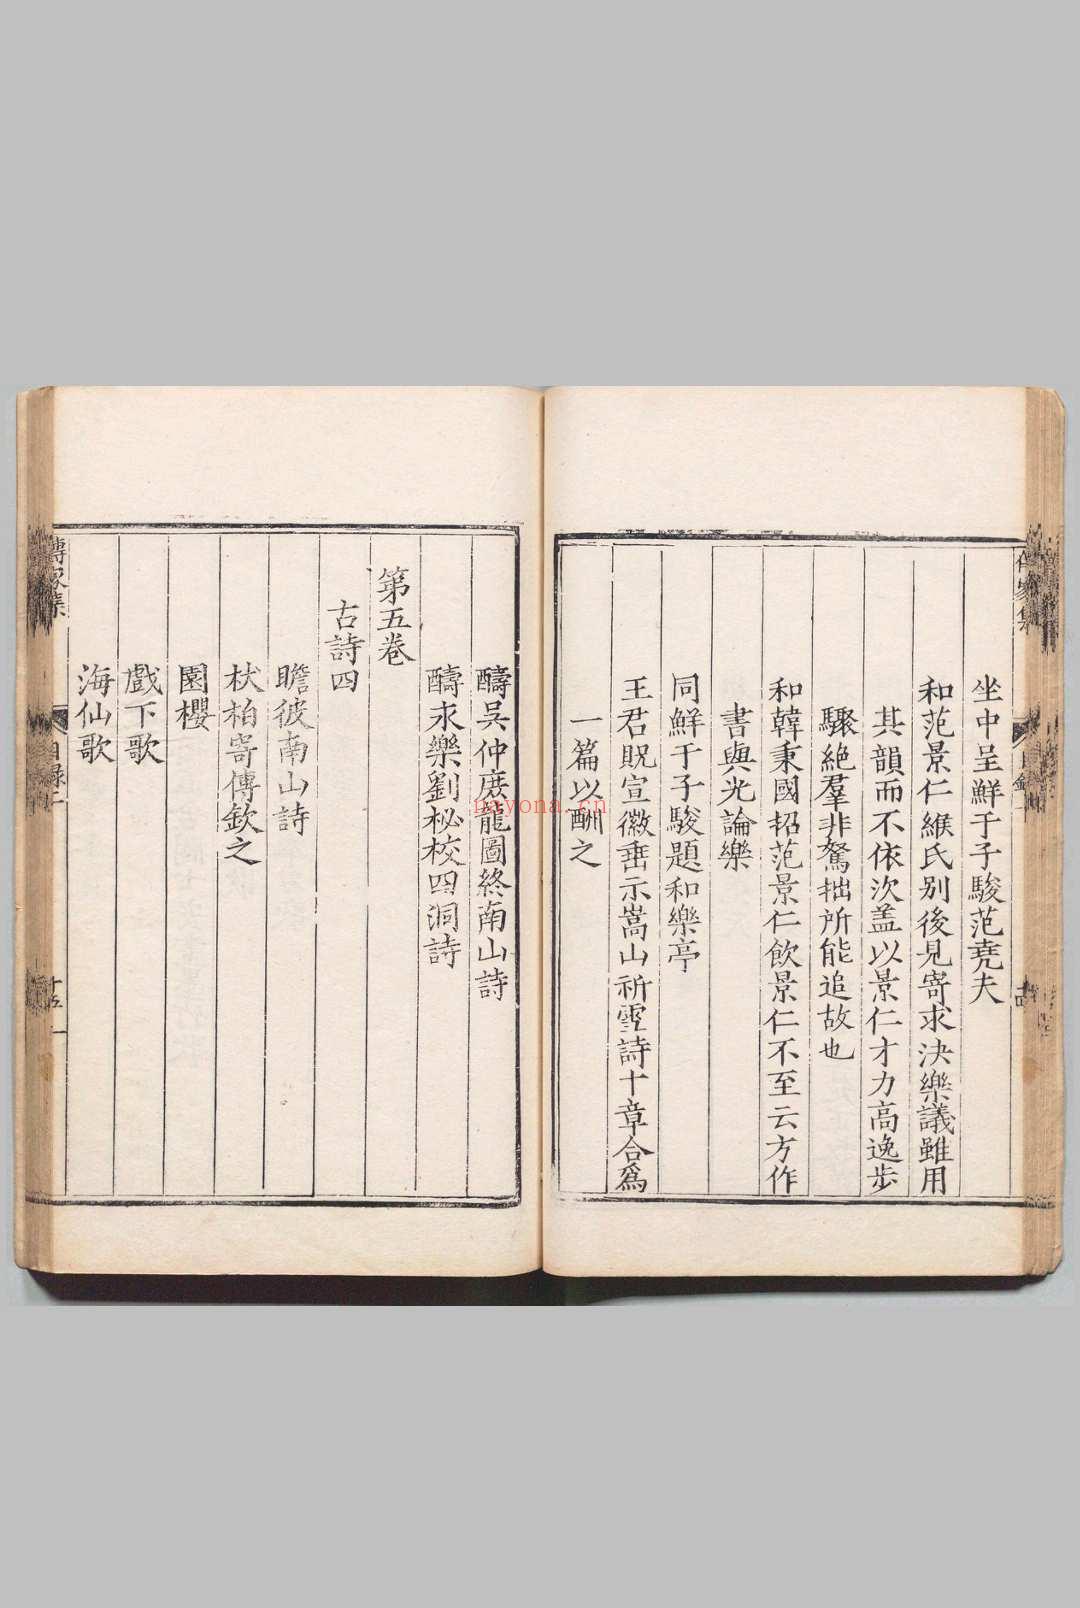 坐中呈鮮于子駿范堯夫
和范景仁緱氏别後見寄求決樂議雖用
其韻而不依次盖以景仁才力高逸步
驟絶羣非駑拙所能追故也
和韓秉國招范景仁飲景仁不至云方作
書與光論樂
同鮮于子駿題和樂亭
王君貺宣徽垂示嵩山祈雪詩十章合爲
一篇以酬之
醻吳仲庶龍圖終南山詩
醻永樂劉秘校四洞詩
第五卷
古詩四
瞻彼南山詩
栿柏寄傳欽之
園櫻
戲下歌
海仙歌
傳家集
目録
nayona.cn